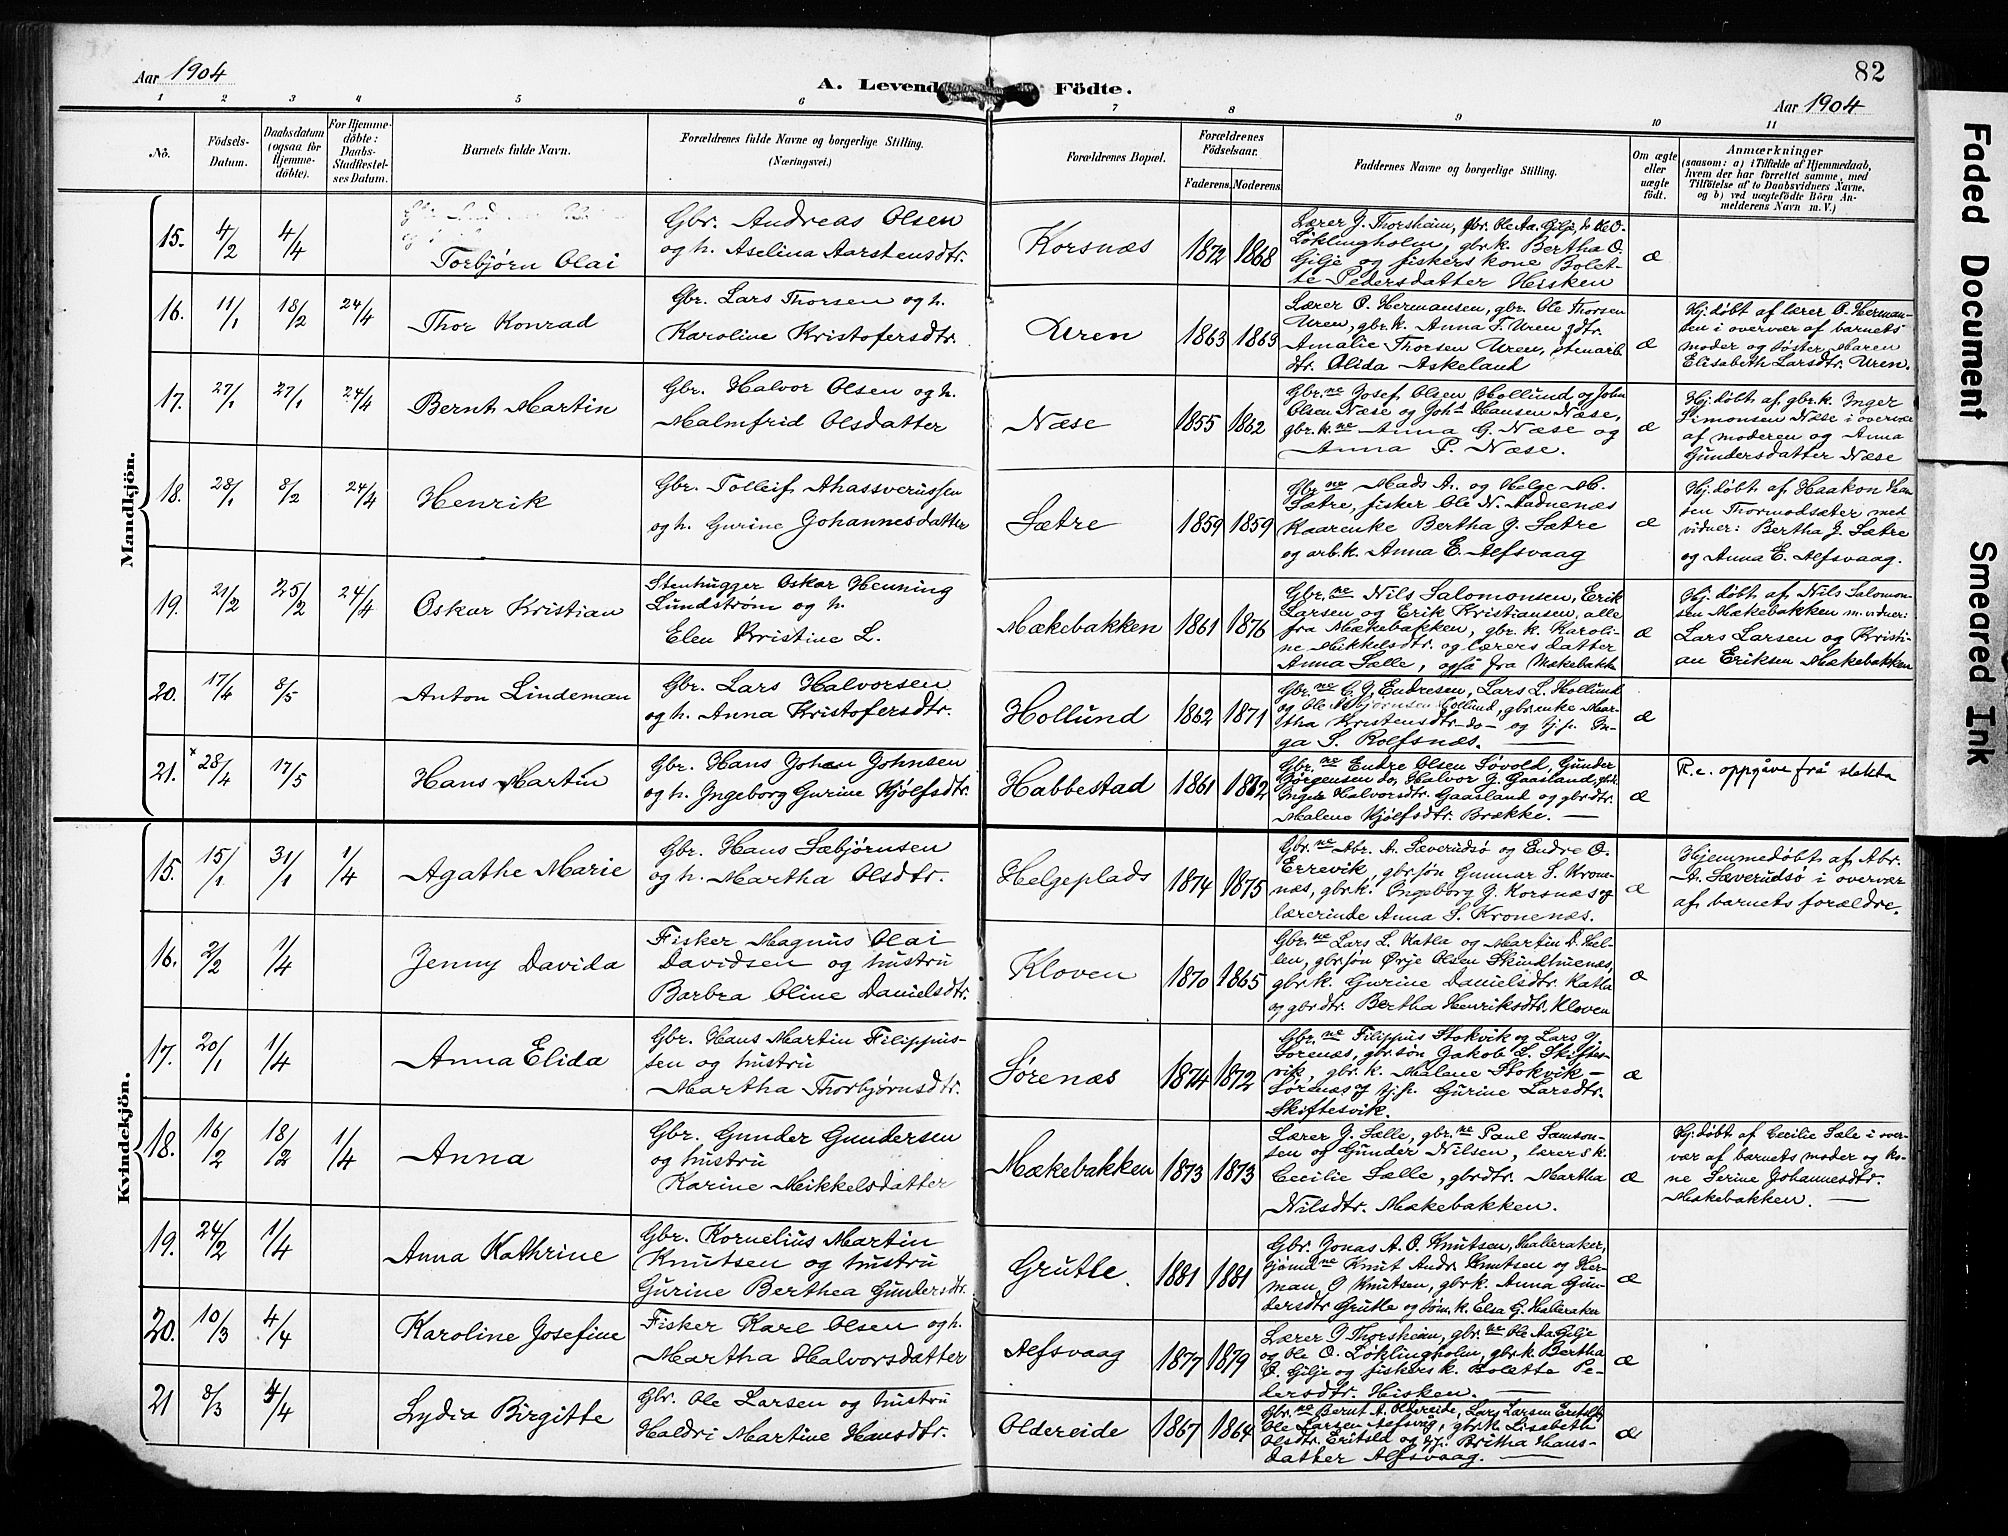 Aar 1904
A. Levend Födte.
82
Aar 1904
1 2 3 4 5 6 7 8 9 10 11
No.
Födsels-
Datum.
Daabsdatum
(ogsaa för
Hjemme-
döbte).
For Hjemme-
döbte:
Daabs-
Stadfæstel-
ses Datum.
Barnets fulde Navn.
Forældrenes fulde Navne og borgerlige Stilling.
(Næringsvei.)
Forældrenes Bopæl.
Forældrenes
Födselsaar.
Faderens. Moderens.
Faddernes Navne og borgerlige Stilling.
Om ægte
eller
uægte
födt.
Anmærkninger
(saasom: a) i Tilfælde af Hjemmedaab,
hvem der har forrettet samme, med
Tilföielse af to Daabsvidners Navne,
og b) ved uægtefödte Börn An-
melderens Navn m. V.)
Mandkjön.
15. 4/2 4/4
Torbjørn Olai
Gbr. Andreas Olsen
og h. Aselina Aarstensdtr.
Korsnæs 1872 1868
Lærer J. Thorsheim, gbr. Ole Aa. Gilje, Ole O.
Løklingholm, gbr.k. Bertha O.
Gilje og fiskers kone Bolet-
te Pedersdatter Hisken
æ
16. 11/1 18/2 24/4
Thor Konrad
Gbr. Lars Thorsen og h.
Karoline Kristofersdtr.
Uren 1863 1863
Lærer O. Hermansen, gbr. Ole Thorsen
Uren, gbr.k. Anna T. Uren gdtr.
Amalie Thorsen Uren, stenarb
dtr. Olida Askeland
æ
Hj. døbt af lærer O. Herman-
sen i overvær af barnets
moder og søster Maren
Elisabeth Larsdtr. Uren.
17. 27/1 27/1 24/4
Bernt Martin
Gbr. Halvor Olsen og h.
Malmfrid Olsdatter
Næse 1855 1862
Gbr.ne Josef Olsen Hollund og John
Olsen Næse og Johs Hansen Næse,
gbr.k.ne Anna G. Næse og
Anna P. Næse.
æ
Hj. døbt af gbr.k. Inger
Simonsen Næse i overvær
af moderen og Anna
Gundersdatter Næse
18. 28/1 8/2 24/4
Henrik
Gbr. Tolleif Ahassverussen
og h. Gurine Johannesdatter
Sætre 1859 1859
Gbr.ne Mads A. og Helge M.
Sætre, fisker Ole N. Aadnenæs
Kaarenke Bertha J. Sætre
og arb.k. Anna E. Alfsvaag
æ
Hj. døbt af Haakon Han
sen Thormodsæter med
vidner: Bertha J. Sætre
og Anna E. Alfsvaag.
19. 21/2 25/2 24/4
Oskar Kristian
Stenhugger Oskar Henning
Lundstrøm og h.
Elen Kristine L.
Mækebakken 1861 1876
Gbr.ne Nils Salomonsen, Erik
Larsen og Erik Kristiansen, alle
fra Mækebakken, gbr.k. Karoli-
ne Mikkelsdtr. og lærers datter
Anna Sælle, også fra Mækebakke
æ
Hj. døbt af Nils Salomon-
sen Mækebakken m. vidner:
Lars Larsen og Kristi-
an Eriksen Mækebakken
20. 17/4 8/5
Anton Lindeman
Gbr. Lars Halvorsen
og h. Anna Kristofersdtr.
Hollund 1862 1871
Gbr.ne C. J. Endresen, Lars L. Hollund
og Ole Asbjørnsen Hollund, gbr.enke Mar-
tha Kristensdtr -do- og tj.p. In-
ga S. Rolfsnæs.
æ
21. x 28/4 17/5
Hans Martin
Gbr. Hans Johan Johnsen
og h. Ingeborg Gurine Kjølfsdtr.
Habbestad 1861 1862
Gbr.ne Endre Olsen Søvold, Gunder
Børgensen do, Halvor J. Gaasland, gbr.k.
Inger Halvorsdtr. Gaasland og gbrdtr.
Malene Kjølfsdtr. Brække.
æ
R.e. oppgåve frå slekta
Kvindekjön.
15. 15/1 31/1 1/4
Agathe Marie
Gbr. Hans Sæbjørnsen
og h. Martha Olsdtr.
Helgeplads 1874 1875
Gbr.ne Abr. A. Sæverudsø og Endre O.
Errevik, gbr.søn Gunnar S. Krone-
næs, gbr.k. Ingeborg J. Korsnæs og
lærerinde Anna S. Kronenæs.
æ
Hjemmedøbt af Abr.
A. Sæverudsø i overvær
af barnets forældre.
16. 2/2 1/4
Jenny Davida
Fisker Magnus Olai
Davidsen og hustru
Barbra Oline Danielsdtr.
Kloven 1870 1865
Gbr.ne Lars L. Katla og Martin D. Hel-
len, gbr.søn Ørje Olsen Skindhuenæs,
gbr.k. Gurine Danielsdtr. Katla
og gbr.dtr. Bertha Henriksdtr. Kloven
æ
17. 20/1 1/4
Anna Elida
Gbr. Hans Martin Filippus-
sen og hustru
Martha Thorbjørnsdtr.
Sørenæs 1874 1872
Gbr.ne Filippus Stokvik og Lars J.
Sørenæs, gbr.søn Jakob L. Skiftes-
vik, gbr.k. Malene Stokvik –
Sørenæs og tj.p. Gurine Larsdtr.
Skiftesvik.
æ
18. 16/2 18/2 1/4
Anna
Gbr. Gunder Gundersen
og hustru
Karine Mikkelsdatter
Mækebakken 1873 1873
Lærer J. Sælle, gbr.ne Paul Samson-
sen og Gunder Nilsen, lærers k.
Cecilie Sælle, gbrdtr. Martha
Nilsdtr. Mækebakken.
æ
Hj. døbt af Cecilie Sæle i over-
vær af barnets moder og ko-
ne Serine Johannesdtr.
Mækebakken.
19. 24/2 1/4
Anna Kathrine
Gbr. Kornelius Martin
Knutsen og hustru
Gurine Berthea Gundersdtr.
Grutle. 1881 1881
Gbr. Jonas A. O. Knutsen, Halleraker,
sjømd.ne Knut Andr. Knutsen og Her-
man O Knutsen, gbr.k. Anna Gun-
dersdtr Grutle og søm.k. Elsa G. Halleraker
æ
20. 10/3 4/4
Karoline Josefine
Fisker Karl Olsen og h.
Martha Halvorsdatter
Alfsvaag 1877 1879
Lærer J Thorsheim, gbr.ne Ole Aa Gilje
og Ole O. Løklingholm, gbr.k Bertha
O. Gilje og fiskers k. Bolette Pe-
dersdtr. Hisken.
æ
21 8/3 4/4
Lydia Birgitte
Gbr. Ole Larsen og hustru
Haldri Martine Hansdtr.
Oldereide 1867 1864
Gbr.ne Bernt A. Oldereide, Lars Larsen Eritsld,
Ole Larsen Alfsvåg, gbr.k. Lisabeth
Olsdtr. Eritsld og tj.p. Britha Hans-
datter Alfsvaag.
æ
Faded Document
Smeared Ink